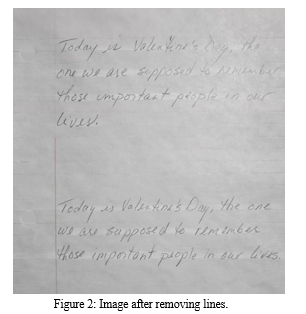 Today is Valentine's Day, the
one we are supposed to remember
those important people in our
lives.
Today is Valentine's Day, the one
we are supposed to remember
those important people in our lives.
Figure 2: Image after removing lines.